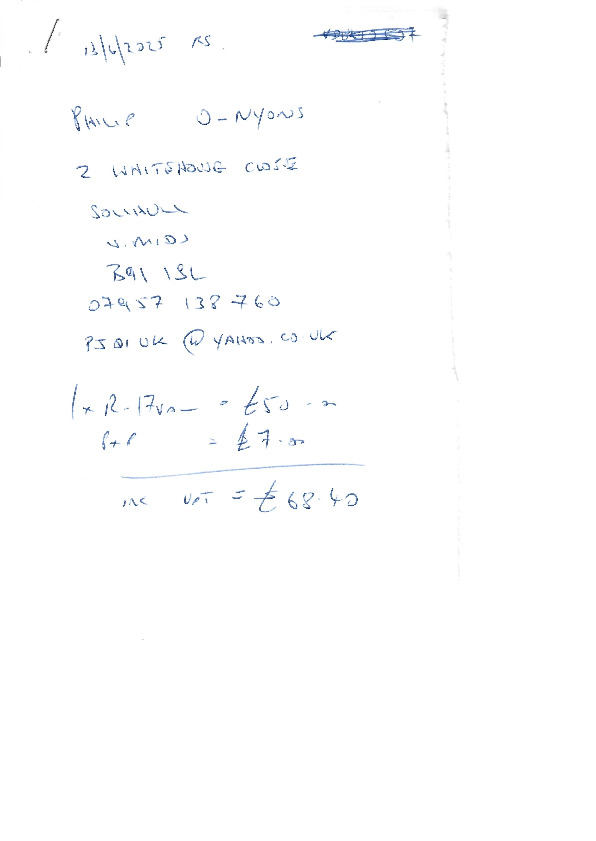 13/6/2025 RS.
PHILIP O-NYONS
2 WHITEHOUSE CLOSE
SOLIHULL
W. MIDS
B91 1SL
07957 138 760
@YAHOO.CO.UK
1 x = £50-00
P+P = £7-00
INC VAT = £68.40